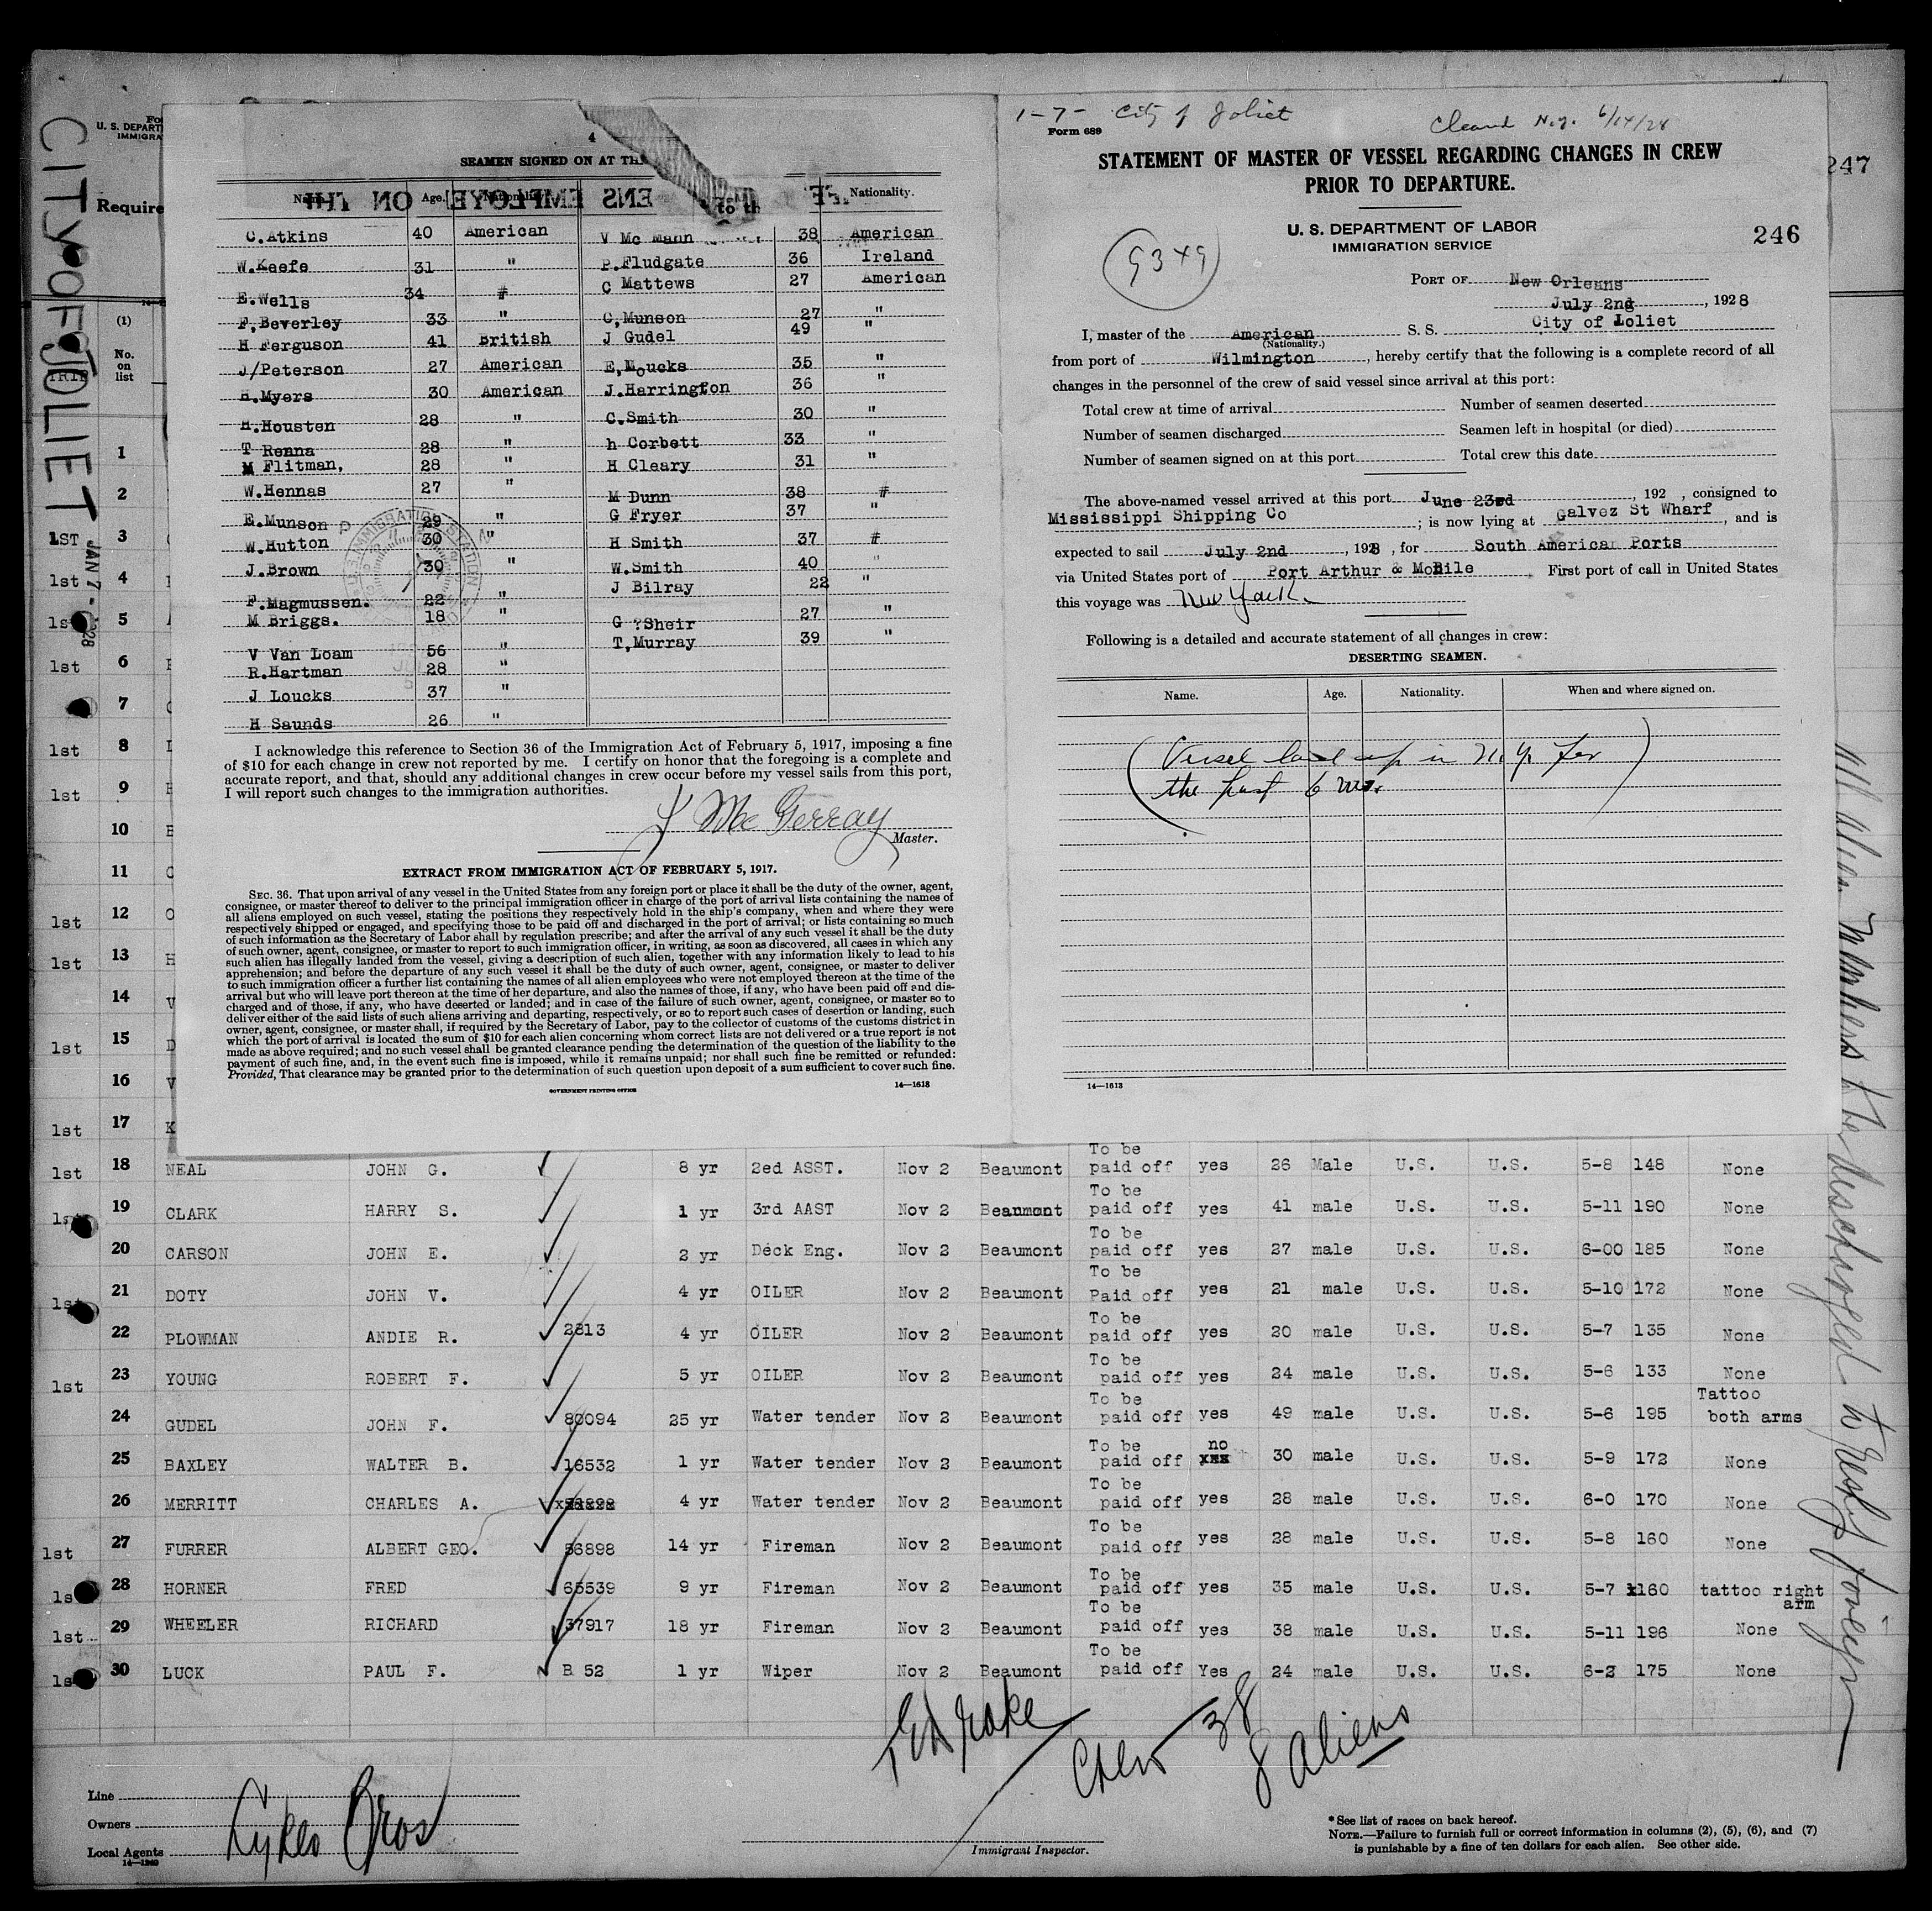 CITY OF JOLIET
JAN 7 - 1928
U. S. DEPART
IMMIGRA
Require
247
4
SEAMEN SIGNED ON AT TH
Age. Nationality.
C.Atkins 40 American V Mc Mann 38 American
W.Keefe 31 " P.Fludgate 36 Ireland
E.Wells 34 # C Mattews 27 American
F,Beverley 33 " C,Munson 27 "
H Ferguson 41 British J Gudel 49 "
J/Peterson 27 American E,Moucks 35 "
H.Myers 30 American J.Harrington 36 "
H.Housten 28 " C.Smith 30 "
T Renna 28 " h Corbett 33 "
M Flitman, 28 " H Cleary 31 "
W.Hennas 27 " M Dunn 38 #
E.Munson 29 " G Fryer 37 "
W.Hutton 30 " H Smith 37 #
J.Brown 30 " W.Smith 40 "
F.Magmussen. 22 " J Bilray 22 "
M Briggs. 18 " G ?Sheir 27 "
V Van Loam 56 " T,Murray 39 "
R.Hartman 28 "
J Loucks 37 "
H Saunds 26 "
I acknowledge this reference to Section 36 of the Immigration Act of February 5, 1917, imposing a fine
of $10 for each change in crew not reported by me. I certify on honor that the foregoing is a complete and
accurate report, and that, should any additional changes in crew occur before my vessel sails from this port,
I will report such changes to the immigration authorities.
Master.
EXTRACT FROM IMMIGRATION ACT OF FEBRUARY 5, 1917.
SEC. 36. That upon arrival of any vessel in the United States from any foreign port or place it shall be the duty of the owner, agent,
consignee, or master thereof to deliver to the principal immigration officer in charge of the port of arrival lists containing the names of
all aliens employed on such vessel, stating the positions they respectively hold in the ship's company, when and where they were
respectively shipped or engaged, and specifying those to be paid off and discharged in the port of arrival; or lists containing so much
of such information as the Secretary of Labor shall by regulation prescribe; and after the arrival of any such vessel it shall be the duty
of such owner, agent, consignee, or master to report to such immigration officer, in writing, as soon as discovered, all cases in which any
such alien has illegally landed from the vessel, giving a description of such alien, together with any information likely to lead to his
apprehension; and before the departure of any such vessel it shall be the duty of such owner, agent, consignee, or master to deliver
to such immigration officer a further list containing the names of all alien employees who were not employed thereon at the time of the
arrival but who will leave port thereon at the time of her departure, and also the names of those, if any, who have been paid off and dis-
charged and of those, if any, who have deserted or landed; and in case of the failure of such owner, agent, consignee, or master so to
deliver either of the said lists of such aliens arriving and departing, respectively, or so to report such cases of desertion or landing, such
owner, agent, consignee, or master shall, if required by the Secretary of Labor, pay to the collector of customs of the customs district in
which the port of arrival is located the sum of $10 for each alien concerning whom correct lists are not delivered or a true report is not
made as above required; and no such vessel shall be granted clearance pending the determination of the question of the liability to the
payment of such fine, and, in the event such fine is imposed, while it remains unpaid; nor shall such fine be remitted or refunded:
Provided, That clearance may be granted prior to the determination of such question upon deposit of a sum sufficient to cover such fine.
GOVERNMENT PRINTING OFFICE 14—1613
1-7- City of Joliet
Cleared N.Y. 6/14/28
Form 689
STATEMENT OF MASTER OF VESSEL REGARDING CHANGES IN CREW
PRIOR TO DEPARTURE.
U. S. DEPARTMENT OF LABOR
IMMIGRATION SERVICE
246
9349
PORT OF New Orleans
July 2nd , 1928
I, master of the American S. S. City of Loliet
(Nationality.)
from port of Wilmington , hereby certify that the following is a complete record of all
changes in the personnel of the crew of said vessel since arrival at this port:
Total crew at time of arrival Number of seamen deserted
Number of seamen discharged Seamen left in hospital (or died)
Number of seamen signed on at this port Total crew this date
The above-named vessel arrived at this port June 23rd , 192 , consigned to
Mississippi Shipping Co ; is now lying at Galvez St Wharf , and is
expected to sail July 2nd , 1928 , for South American Ports
via United States port of Port Arthur & MoBile First port of call in United States
this voyage was New York.
Following is a detailed and accurate statement of all changes in crew:
DESERTING SEAMEN.
Name. Age. Nationality. When and where signed on.
(Vessel laid up in N.Y. for
the past 6 mos.)
14—1613
(1)
No.
on
list
1
2
1ST 3
1st 4
1st 5
1st 6
7
1st 8
1st 9
10
11
1st 12
1st 13
14
1st 15
16
1st 17
1st 18 NEAL JOHN G. 8 yr 2ed ASST. Nov 2 Beaumont To be paid off yes 26 Male U.S. U.S. 5-8 148 None
1st 19 CLARK HARRY S. 1 yr 3rd AAST Nov 2 Beaumont To be paid off yes 41 male U.S. U.S. 5-11 190 None
20 CARSON JOHN E. 2 yr Deck Eng. Nov 2 Beaumont To be paid off yes 27 male U.S. U.S. 6-00 185 None
1st 21 DOTY JOHN V. 4 yr OILER Nov 2 Beaumont To be Paid off yes 21 male U.S. U.S. 5-10 172 None
22 PLOWMAN ANDIE R. 2813 4 yr OILER Nov 2 Beaumont To be paid off yes 20 male U.S. U.S. 5-7 135 None
1st 23 YOUNG ROBERT F. 5 yr OILER Nov 2 Beaumont To be paid off yes 24 male U.S. U.S. 5-6 133 None
24 GUDEL JOHN F. 80094 25 yr Water tender Nov 2 Beaumont To be paid off yes 49 male U.S. U.S. 5-6 195 Tattoo both arms
25 BAXLEY WALTER B. 16532 1 yr Water tender Nov 2 Beaumont To be paid off no xxx 30 male U.S. U.S. 5-9 172 None
26 MERRITT CHARLES A. 4 yr Water tender Nov 2 Beaumont To be paid off yes 28 male U.S. U.S. 6-0 170 None
1st 27 FURRER ALBERT GEO. 56898 14 yr Fireman Nov 2 Beaumont To be paid off yes 28 male U.S. U.S. 5-8 160 None
1st 28 HORNER FRED 65539 9 yr Fireman Nov 2 Beaumont To be paid off yes 35 male U.S. U.S. 5-7 x160 tattoo right arm
1st 29 WHEELER RICHARD 37917 18 yr Fireman Nov 2 Beaumont To be paid off yes 38 male U.S. U.S. 5-11 196 None
1st 30 LUCK PAUL F. B 52 1 yr Wiper Nov 2 Beaumont To be paid off Yes 24 male U.S. U.S. 6-2 175 None
All alien members to be discharged to reship foreign
Drake
Crew 38
8 aliens
Line
Owners
Local Agents Lykes Bros
14—1240
Immigrant Inspector.
* See list of races on back hereof.
NOTE.—Failure to furnish full or correct information in columns (2), (5), (6), and (7)
is punishable by a fine of ten dollars for each alien. See other side.